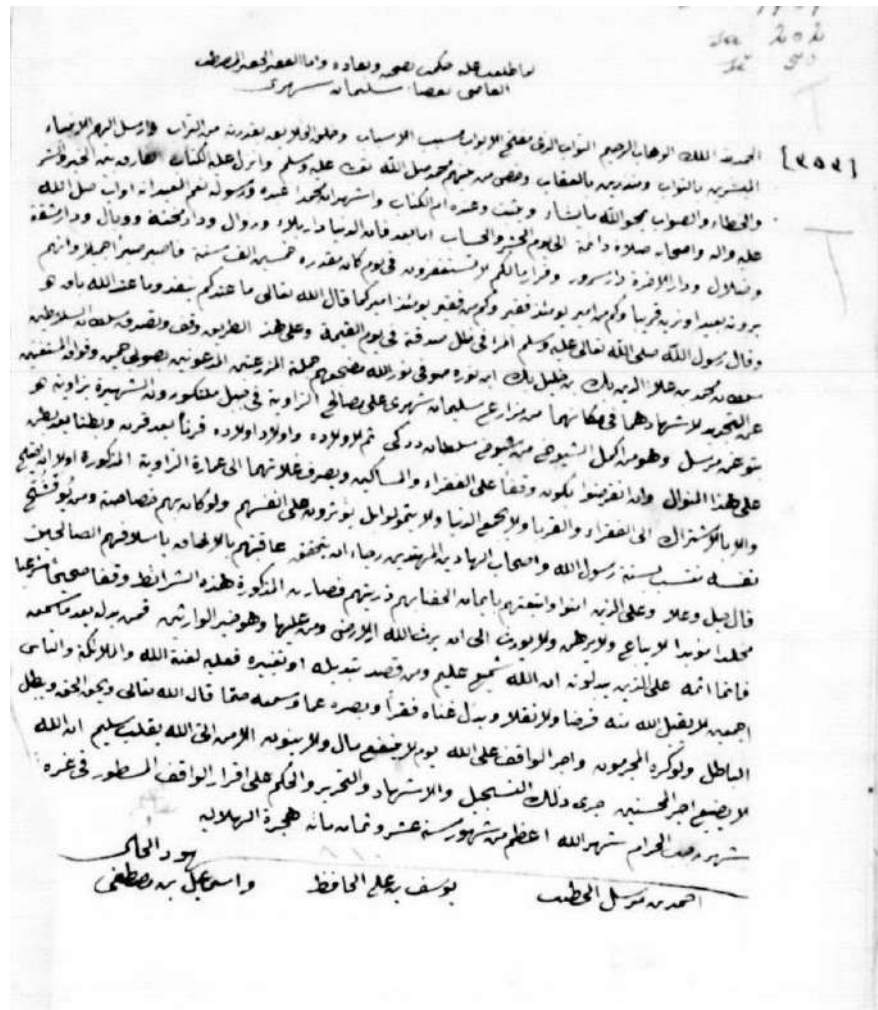 لما طلعت عليه حكمت بصحته ونفاذه وانا الفقير الحقير المصطفى
القاضي بقضاء سليمان شهرى
[٣٥٣]
الحمد لله الملك الوهاب الرحيم التواب الذى مفتح الابواب مسبب الاسباب وخلق الخلايق بقدرته من التراب وارسل اليهم الانبياء
المبشرين بالثواب ومنذرين بالعقاب وخص من بينهم محمد صلى الله عليه وسلم وانزل عليه الكتاب الفارق بين الخير والشر
والخطاء والصواب يمحو الله ما يشاء ويثبت وعنده ام الكتاب واشهد ان محمدا عبده ورسوله نعم العبد انه اواب صلى الله
عليه واله واصحابه صلاة دائمة الى يوم الحشر والحساب اما بعد فان الدنيا دار بلاء وزوال ودار محنة ووبال ودار مشقة
وضلال ودار الاخرة دار سرور وقرار مالكم لا تستغفرون فى يوم كان مقداره خمسين الف سنة فاصبر صبرا جميلا وانهم
يرونه بعيدا ونريه قريبا وكم من امير يومئذ فقير وكم من فقير يومئذ امير كما قال الله تعالى ما عندكم ينفد وما عند الله باق
وقال رسول الله صلى الله تعالى عليه وسلم المرا فى ظل صدقته فى يوم القيمة وعلى هذا الطريق وقف وتصدق سلطان السلاطين
سلطان محمد بن علاء الدين بك بن خليل بك ابن نوره صوفى نور الله مضجعهم جملة المزرعتين المدعوتين
عن التحديد لاشتهارهما فى مكانهما من مزارع سليمان شهرى على مصالح الزاوية فى جبل والشهيرة بزاوية
مرسل وهو من اكمل الشيوخ من سلطان ثم لاولاده واولاد اولاده قرنا بعد قرن وبطنا بعد بطن
على هذا المنوال وان انقرضوا يكون وقفا على الفقراء والمساكين ويصرف غلاتهما الى عمارة الزاوية المذكورة اولا
والا بالاشتراك الى الفقراء والغربا ولا بجمع الدنيا ولا يؤثرون على انفسهم ولو كان بهم خصاصة ومن يوق شح
نفسه بسنة رسول الله واصحاب الهادين المهتدين رجاء ان يتحقق عاقبتهم بالالحاق باسلافهم الصالحين
قال جل وعلا والذين امنوا واتبعتهم بايمان الحقنا بهم ذريتهم فصارت المذكورة هذه الشرائط وقفا صحيحا شرعيا
مخلدا مؤبدا لا يباع ولا يرهن ولا يورث الى ان يرث الله الارض ومن عليها وهو خير الوارثين فمن بدله بعد ما سمعه
فانما اثمه على الذين يبدلونه ان الله سميع عليم ومن قصد تبديله او تغييره فعليه لعنة الله والملائكة والناس
اجمعين لا يقبل الله منه فرضا ولا نفلا وبدل غناه فقرا وبصره عما وسمعه صما قال الله تعالى ويحق الحق ويبطل
الباطل ولو كره المجرمون واجر الواقف على الله يوم لا ينفع مال ولا بنون الا من اتى الله بقلب سليم ان الله
لا يضيع اجر المحسنين جرى ذلك التسجيل والاشهاد والتحرير والحكم على اقرار الواقف المسطور فى غره
شهر رجب الحرام شهر الله اعظم من شهور سنة عشر وثمان مائة هجرة الهلالية
شهود الحال
احمد بن مرسل الخطيب يوسف بن على الحافظ واسماعيل بن مصطفى